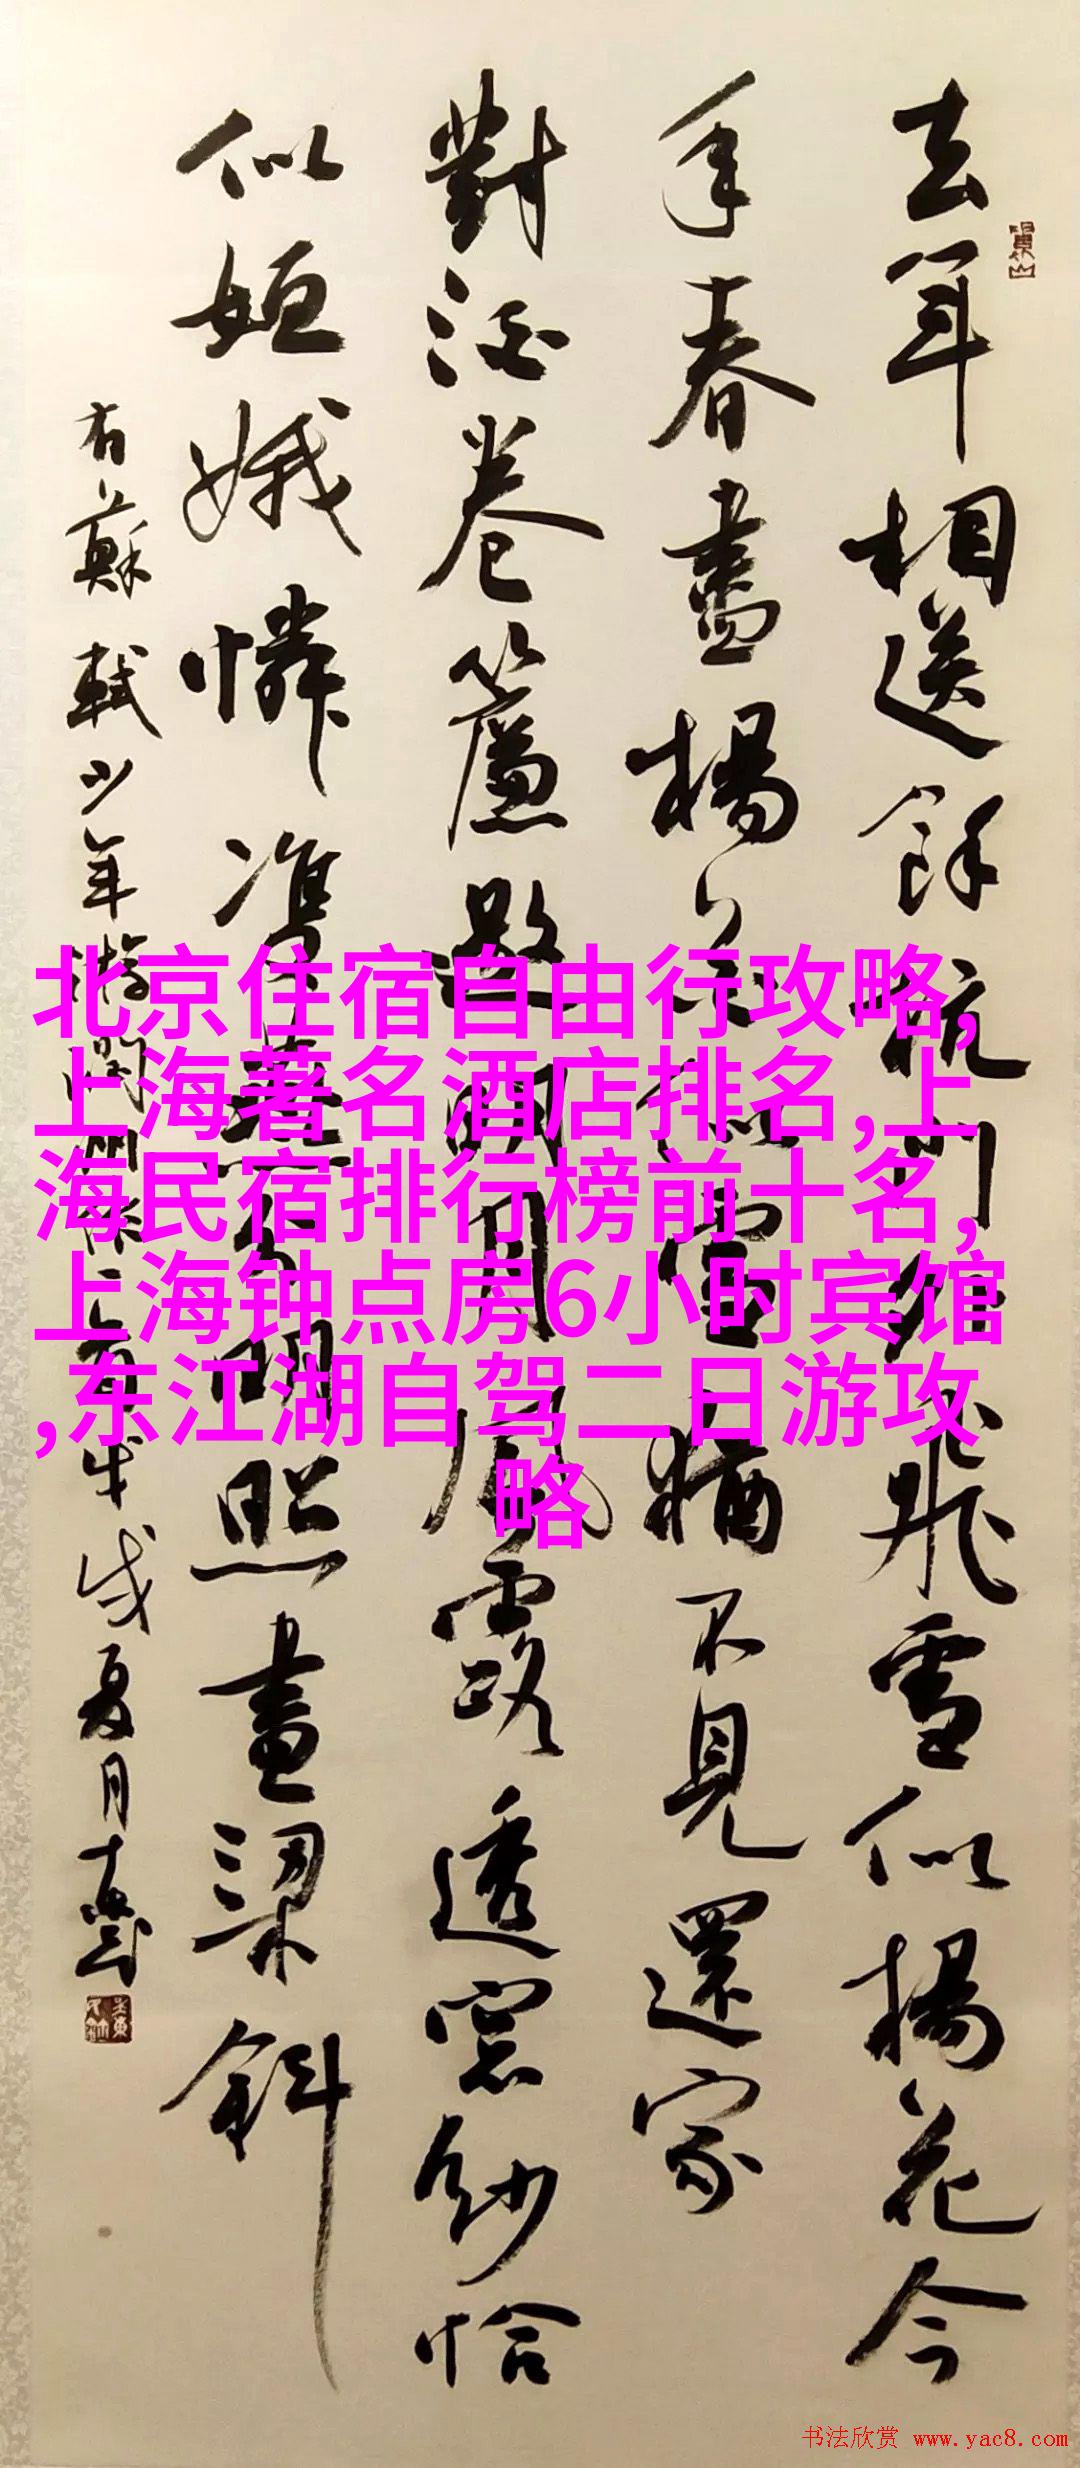 去年相送餘杭門外飛雪似楊花今
年春盡楊花似雪猶不見還家
對酒卷簾邀明月風露透窗紗恰
似姮娥憐雙燕分明照畫梁斜
右蘇軾少年游潤州作 戌夏月
北京住宿自由行攻略,
上海著名酒店排名,上
海民宿排行榜前十名,
上海钟点房6小时宾馆
,东江湖自驾二日游攻
略
书法欣赏 www.yac8.com